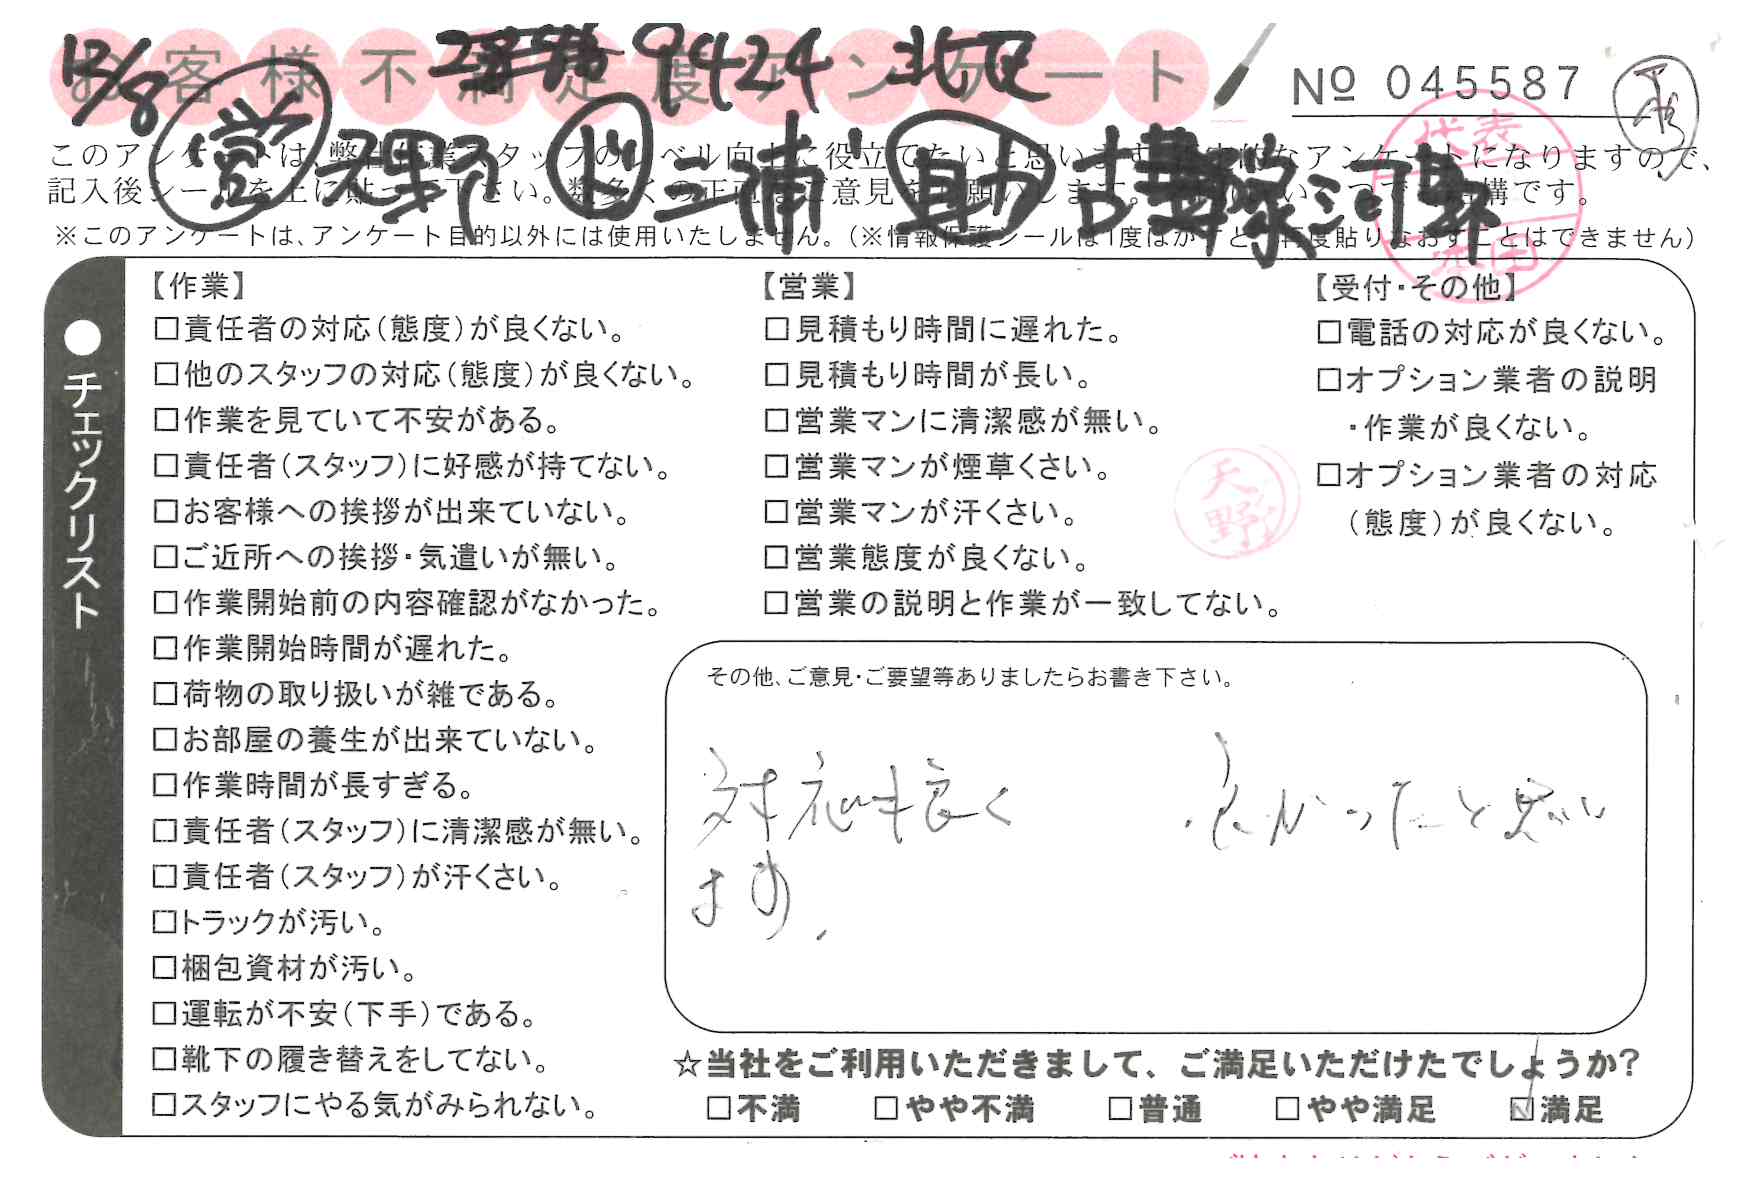 お客様不満足度アンケート
12/8 9424 北区
№ 045587
営 天野 作 三浦 助 古澤 河井
このアンケートは、弊社作業スタッフのレベル向上に役立てたいと思います
なアンケートになりますので、
記入後シールを上に貼って下さい。数多くの正直なご意見をお願いします。
結構です。
※このアンケートは、アンケート目的以外には使用いたしません。(※情報保護シールは1度はがすと、再度貼りなおすことはできません)
代表
本田
●チェックリスト
【作業】
□責任者の対応(態度)が良くない。
□他のスタッフの対応(態度)が良くない。
□作業を見ていて不安がある。
□責任者(スタッフ)に好感が持てない。
□お客様への挨拶が出来ていない。
□ご近所への挨拶・気遣いが無い。
□作業開始前の内容確認がなかった。
□作業開始時間が遅れた。
□荷物の取り扱いが雑である。
□お部屋の養生が出来ていない。
□作業時間が長すぎる。
□責任者(スタッフ)に清潔感が無い。
□責任者(スタッフ)が汗くさい。
□トラックが汚い。
□梱包資材が汚い。
□運転が不安(下手)である。
□靴下の履き替えをしてない。
□スタッフにやる気がみられない。
【営業】
□見積もり時間に遅れた。
□見積もり時間が長い。
□営業マンに清潔感が無い。
□営業マンが煙草くさい。
□営業マンが汗くさい。
□営業態度が良くない。
□営業の説明と作業が一致してない。
【受付・その他】
□電話の対応が良くない。
□オプション業者の説明
・作業が良くない。
□オプション業者の対応
(態度)が良くない。
天野
その他、ご意見・ご要望等ありましたらお書き下さい。
対応も良く 良かったと思い
ます。
☆当社をご利用いただきまして、ご満足いただけたでしょうか?
□不満 □やや不満 □普通 □やや満足 ☑満足